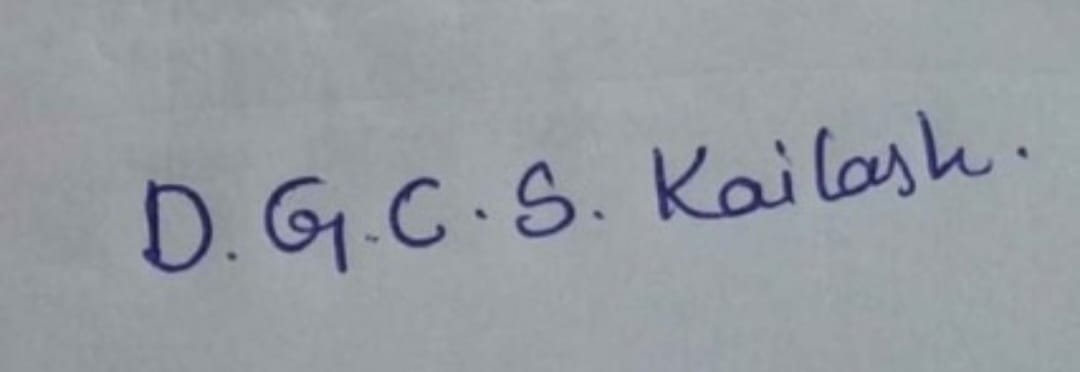 D. G.C.S. Kailash.